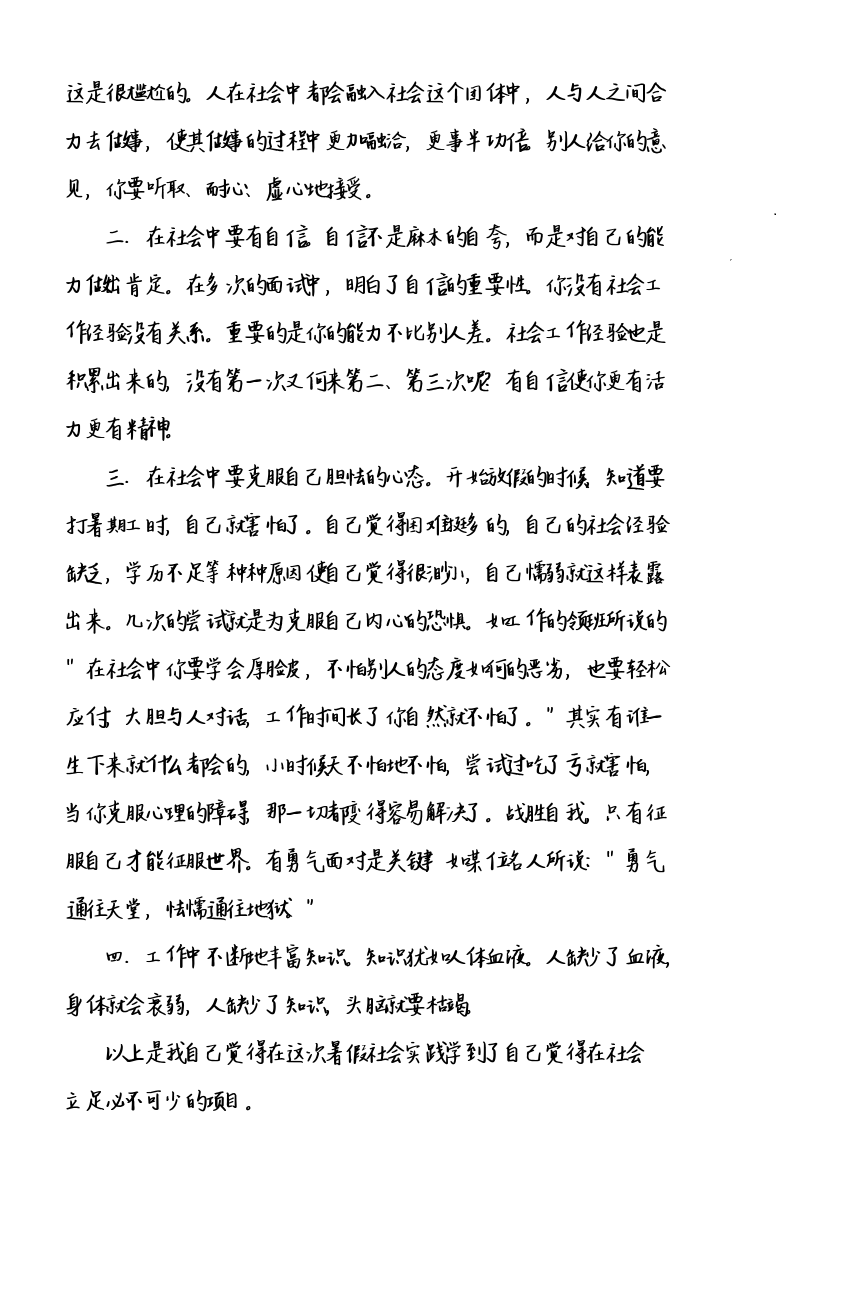 这是很尴尬的。人在社会中都会融入社会这个团体中，人与人之间合
力去做事，使其做事的过程中更加融洽，更事半功倍。别人给你的意
见，你要听取、耐心、虚心地接受。
二．在社会中要有自信。自信不是麻木的自夸，而是对自己的能
力做出肯定。在多次的面试中，明白了自信的重要性。你没有社会工
作经验没有关系。重要的是你的能力不比别人差。社会工作经验也是
积累出来的，没有第一次又何来第二、第三次呢？有自信使你更有活
力更有精神。
三．在社会中要克服自己胆怯的心态。开始放假的时候，知道要
打暑期工时，自己就害怕了。自己觉得困难挺多的，自己的社会经验
缺乏，学历不足等种种原因使自己觉得很渺小，自己懦弱就这样表露
出来。几次的尝试就是为克服自己内心的恐惧。如工作的领班所说的
"在社会中你要学会厚脸皮，不怕别人的态度如何的恶劣，也要轻松
应付，大胆与人对话，工作时间长了你自然就不怕了。"其实有谁一
生下来就什么都会的，小时候天不怕地不怕，尝试过吃了亏就害怕，
当你克服心理的障碍，那一切都变得容易解决了。战胜自我。只有征
服自己才能征服世界。有勇气面对是关键，如某位名人所说："勇气
通往天堂，怯懦通往地狱。"
四．工作中不断地丰富知识。知识犹如人体血液。人缺少了血液，
身体就会衰弱，人缺少了知识，头脑就要枯竭。
以上是我自己觉得在这次暑假社会实践学到了自己觉得在社会
立足必不可少的项目。